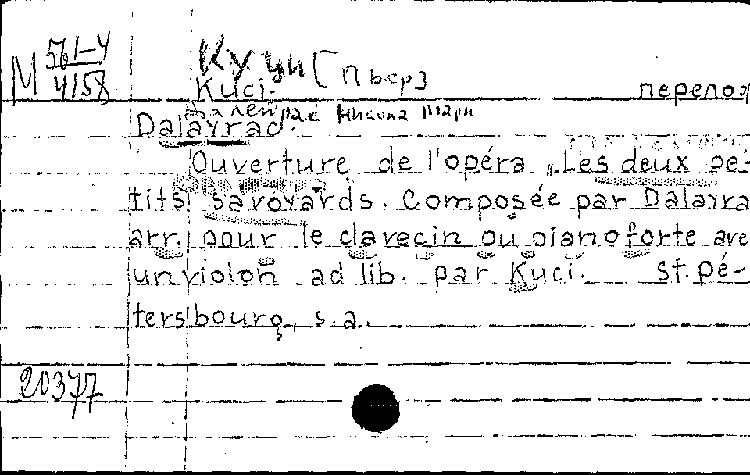 М 561-4
4158
Куци [Пьер]
Kuci.
перелож
Далейрак Никола Мари
Dalayrac.
Ouverture de l'opéra „Les deux pe-
tits savoyards. Composée par Dalayra
arr. pour le clavecin ou pianoforte ave
un violon ad lib. par Kuci. St. Pé-
tersbourg, s.a.
20377